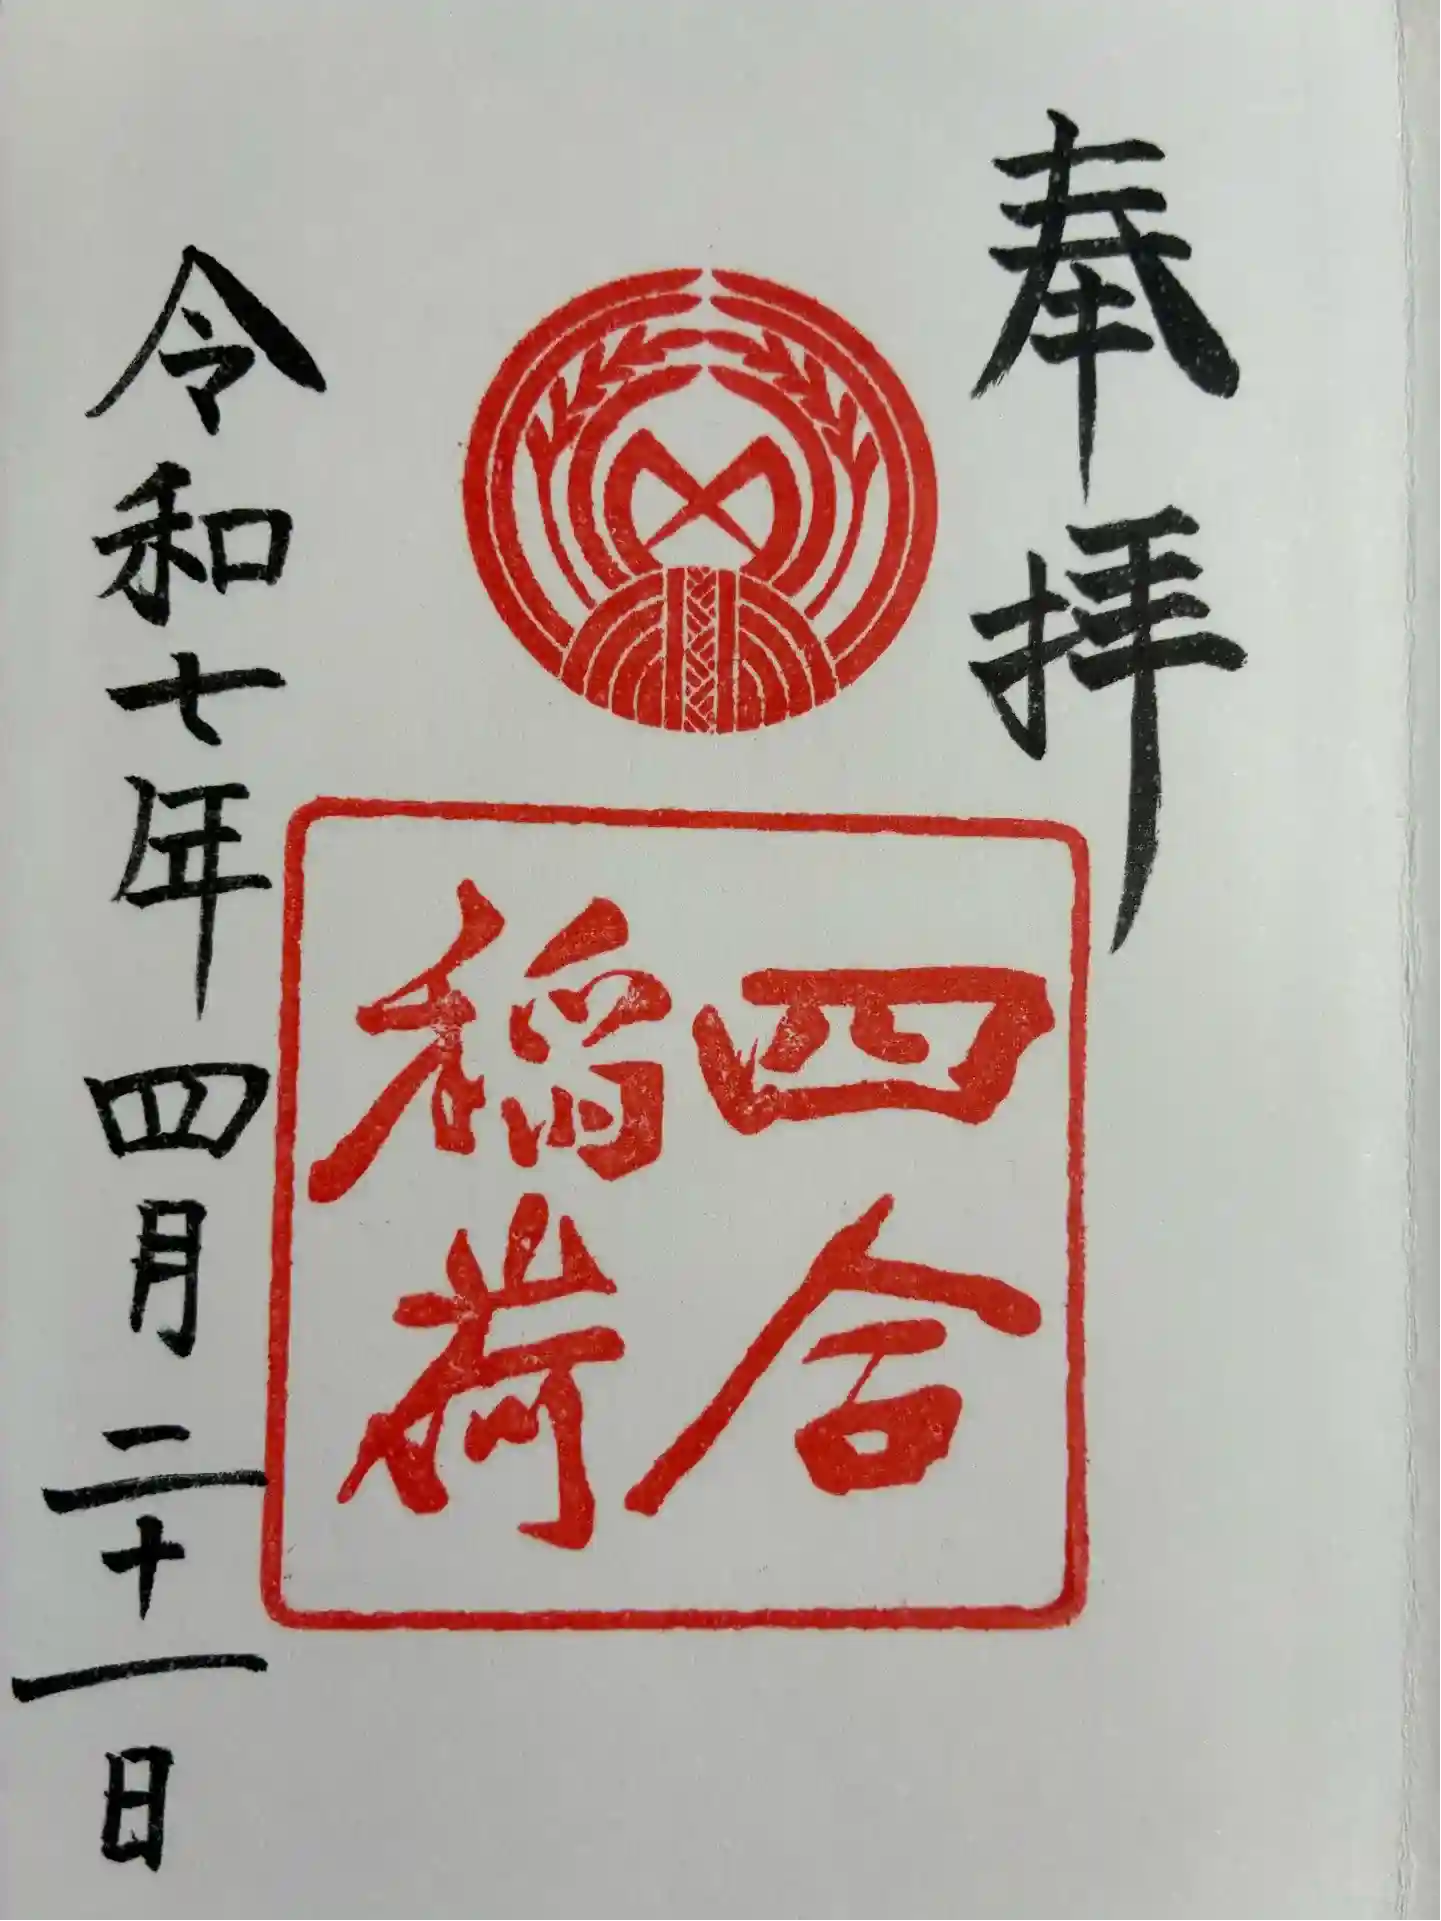 奉拝
四合
稲荷
令和七年 四月 二十一日